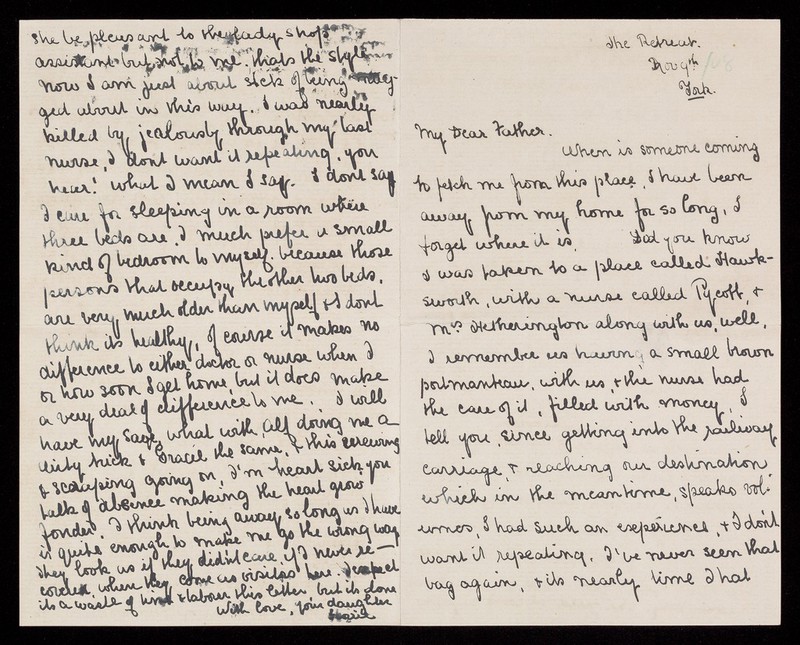 The Retreat.
Nov 9th /08
York.
My Dear Father.
When is someone coming
to fetch me from this place, I have been
away from my home for so long, I
forget where it is. Did you know
I was taken to a place called Hawk-
sworth, with a nurse called Pycott, &
Mrs Hetherington along with us, well,
I remember us having a small brown
portmanteau, with us, & the nurse had
the care of it, filled with money, I
tell you, since getting into the railway
carriage, & reaching our destination
which in the meantime, speaks vol-
umes, I had such an experience, & I don't
want it repeating. I've never seen that
bag again, & its nearly time I had
she be pleasant to the lady shop
assistant but not to me. thats the style
now I am just about sick of being
ged about in this way. I was nearly
killed by jealously through my last
nurse, I dont want it repeating, you
hear! what I mean I say. I dont say
I care for sleeping in a room where
three beds are, I much prefer a small
kind of bedroom to myself. because those
persons that occupy the other two beds,
are very much older than myself & I dont
think its healthy, of course it makes no
difference to either doctor or nurse when I
or how soon I get home, but it does make
a very deal of difference to me. I will
have my say, what with alf doing me a
dirty trick & Gracie the same, & this screwing
& scraping going on, I'm heart sick, you
talk of absence making the heart grow
fonder, I think being away so long as I have
is quite enough to make me go the wrong way
They look as if they didn't care, if I never re-
covered, when they come as visitors here. I expect
its a waste of time & labour this letter, but its done
With love, your daughter